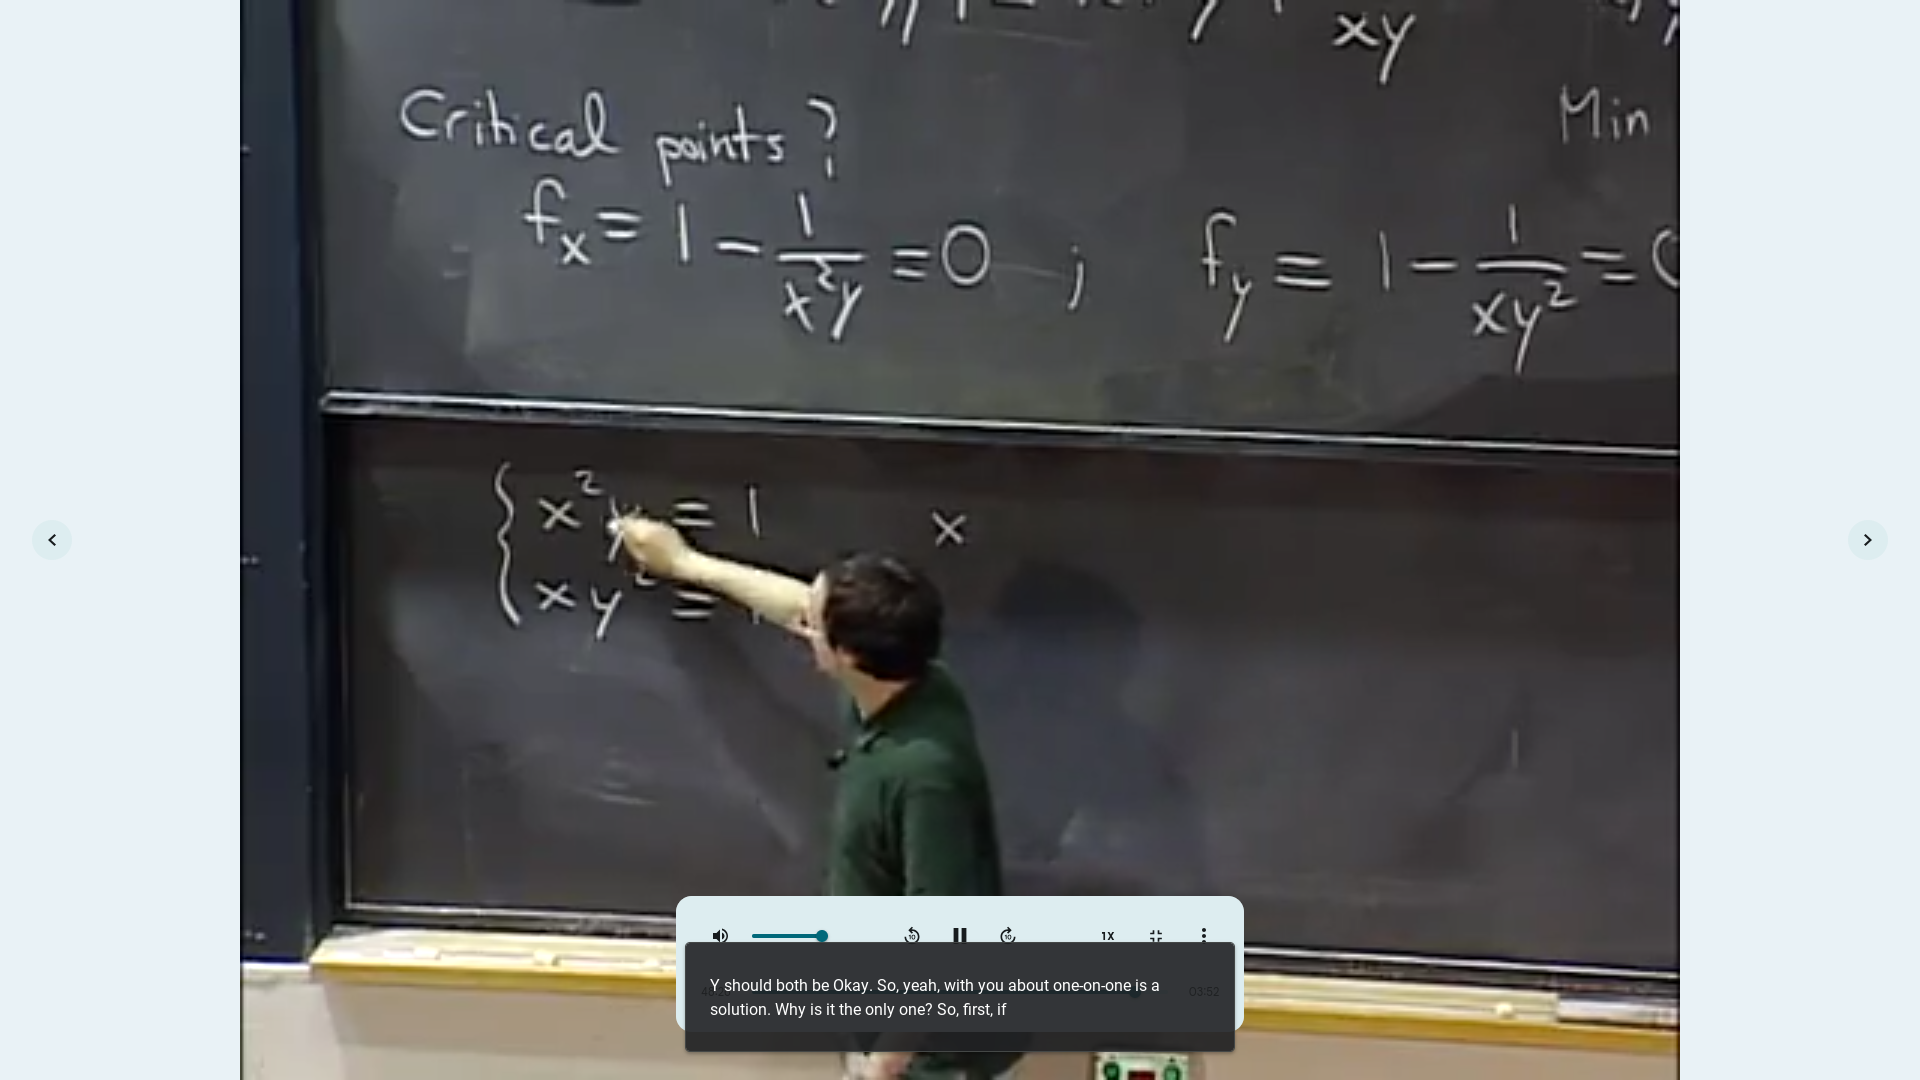 xy
Critical points?
Min
fx = 1 - 1/x²y = 0 ; fy = 1 - 1/xy² = 0
x²y = 1 x
xy² = 1
1X
03:52
Y should both be Okay. So, yeah, with you about one-on-one is a
solution. Why is it the only one? So, first, if